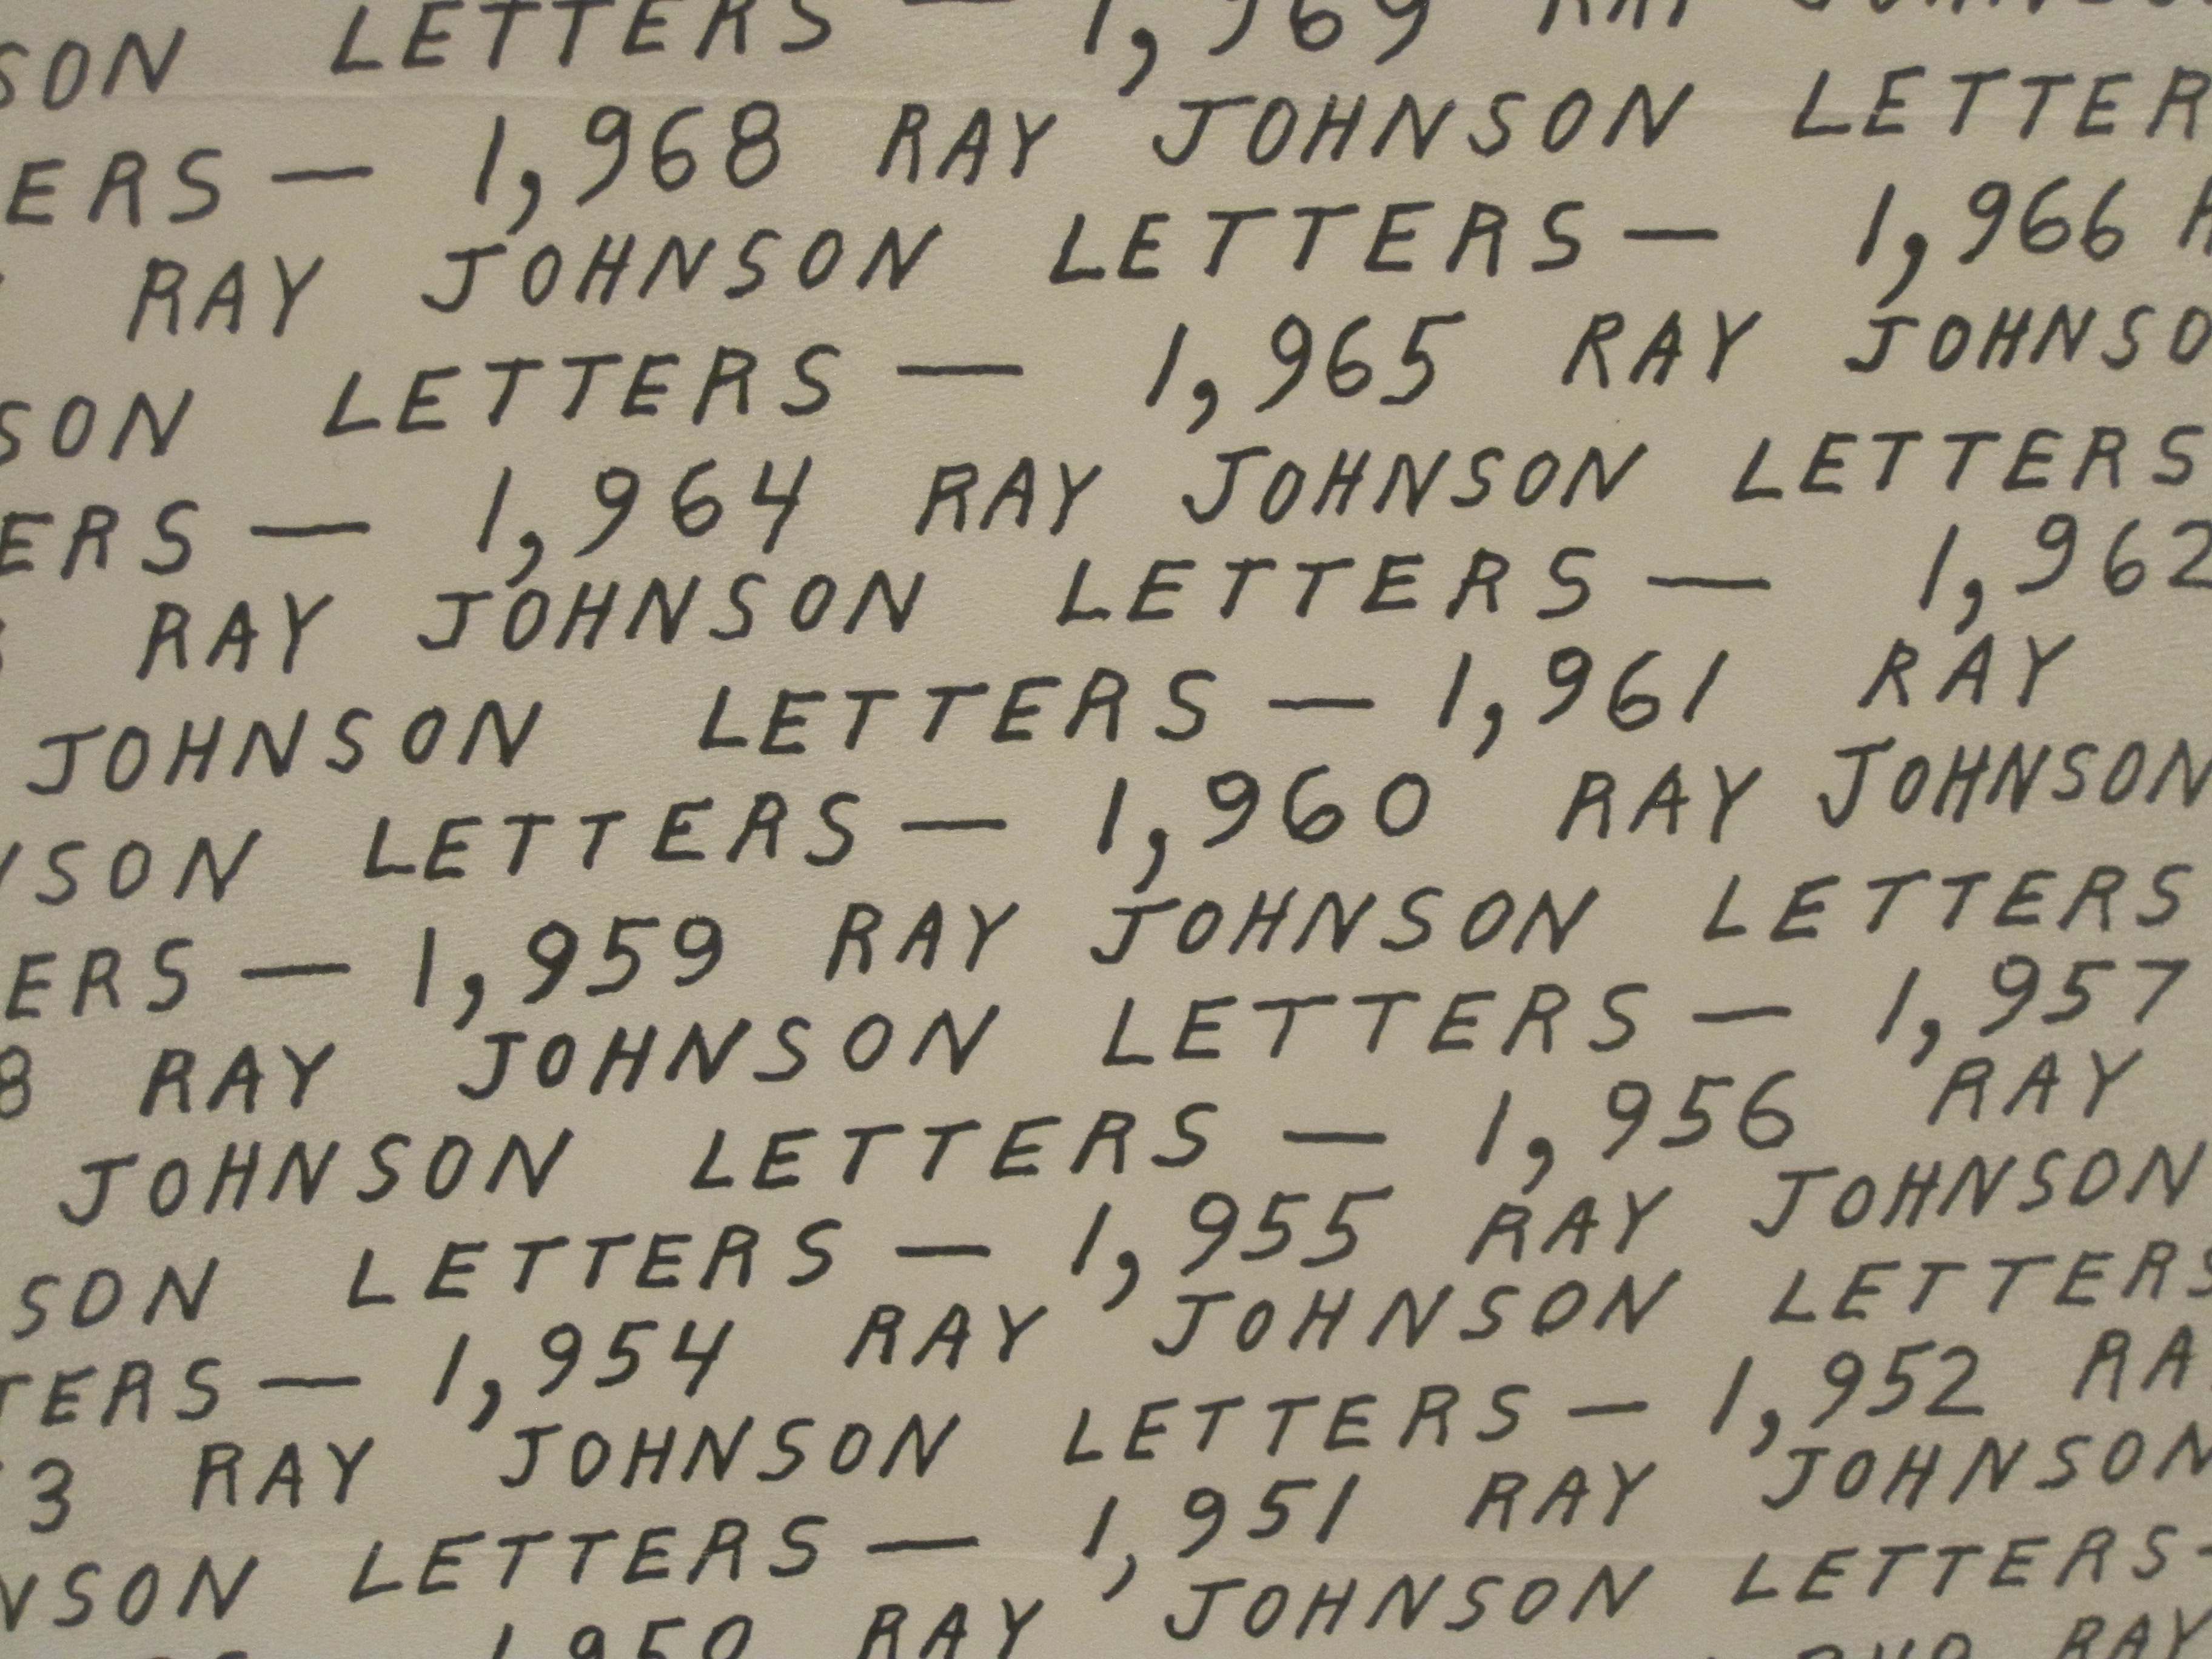 SON LETTERS — 1,969 RAY
ERS — 1,968 RAY JOHNSON LETTER
RAY JOHNSON LETTERS — 1,966
SON LETTERS — 1,965 RAY JOHNSO
ERS — 1,964 RAY JOHNSON LETTERS
RAY JOHNSON LETTERS — 1,962
JOHNSON LETTERS — 1,961 RAY
NSON LETTERS — 1,960 RAY JOHNSON
ERS — 1,959 RAY JOHNSON LETTERS
8 RAY JOHNSON LETTERS — 1,957
JOHNSON LETTERS — 1,956 RAY
SON LETTERS — 1,955 RAY JOHNSON
TERS — 1,954 RAY JOHNSON LETTERS
3 RAY JOHNSON LETTERS — 1,952 RA
NSON LETTERS — 1,951 RAY JOHNSON
1,950 RAY JOHNSON LETTERS —
RAY